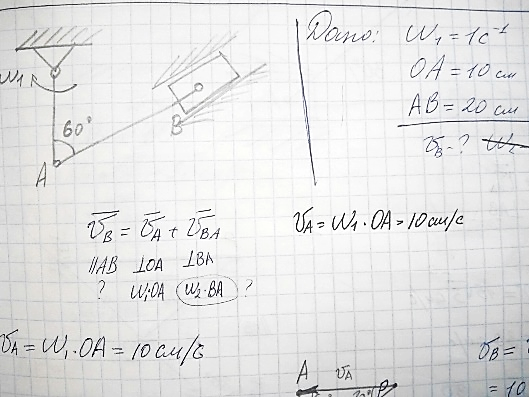 Дано: ω₁ = 1 c⁻¹
OA = 10 см
AB = 20 см
v_B - ? ω₂
ω₁
60°
A
B
v̅_B = v̅_A + v̅_BA
∥AB ⊥OA ⊥BA
? ω₁·OA ω₂·BA ?
v_A = ω₁·OA = 10 см/с
v_A = ω₁·OA = 10 см/с
A v_A
v_B =
= 10